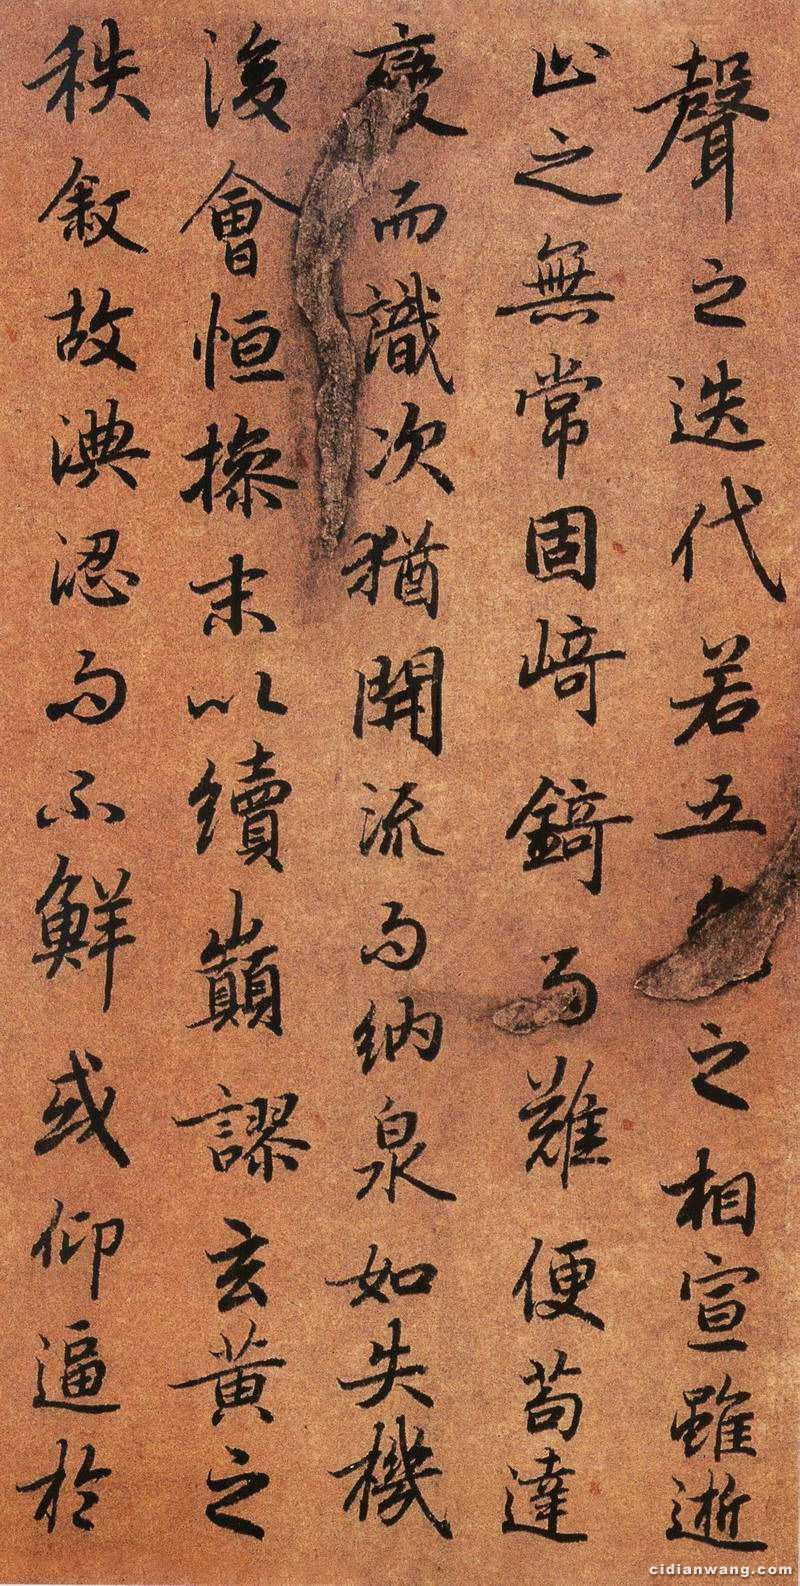 聲之迭代若五色之相宣雖逝
止之無常固崎錡而難便苟達
變而識次猶開流而納泉如失機
後會恒操末以續巔謬玄黃之
秩敘故淟涊而不鮮或仰逼於
cidianwang.com